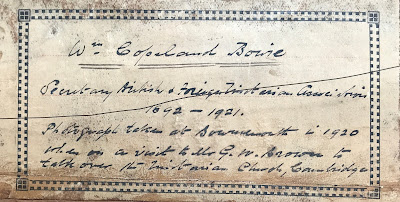 Wm Copeland Bowie
Secretary British & Foreign Unitarian Association
1892 – 1921.
Photograph taken at Bournemouth in 1920
when on a visit to Mr G. W. Brown to
talk over the Unitarian Church, Cambridge